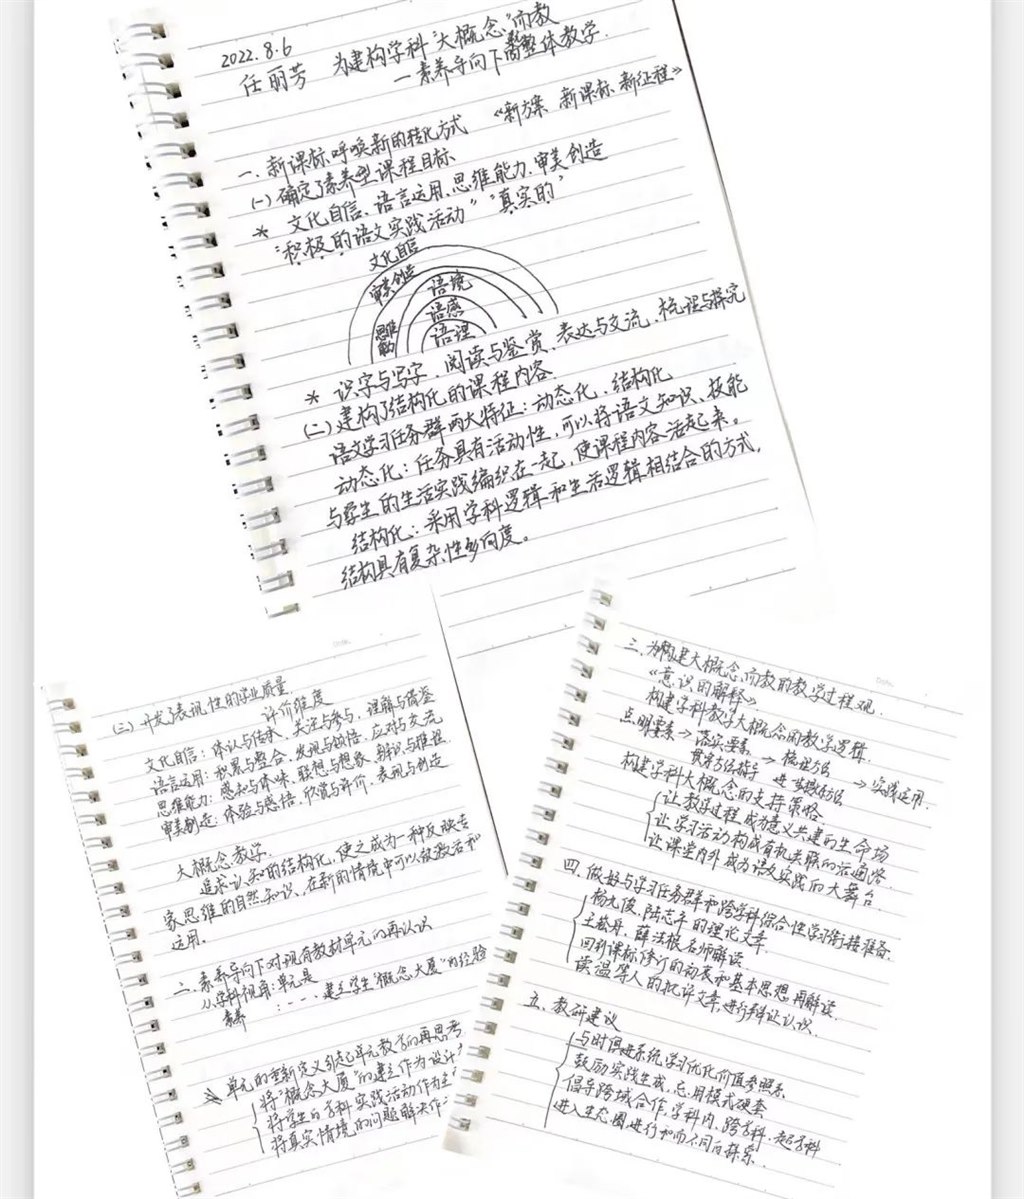 2022.8.6
任丽芳 为建构学科“大概念”而教
—素养导向下的整体教学
《新方案、新课标、新征程》
一、新课标呼唤新的转化方式
(一)确定了素养型课程目标
* 文化自信、语言运用、思维能力、审美创造
“积极的语文实践活动”“真实的”
文化自信
审美创造
语境
语感
思维能力
语理
* 识字与写字、阅读与鉴赏、表达与交流、梳理与探究
(二)建构了结构化的课程内容
语文学习任务群两大特征:动态化、结构化
动态化:任务具有活动性,可以将语文知识、技能
与学生的生活实践编织在一起,使课程内容活起来。
结构化:采用学科逻辑和生活逻辑相结合的方式,
结构具有复杂性多向度。
(三)开发了表现性的学业质量
评价维度
文化自信:体认与传承、关注与参与、理解与借鉴
语言运用:积累与整合、发现与领悟、应对与交流
思维能力:感知与体味、联想与想象、辨识与推理
审美创造:体验与感悟、欣赏与评价、表现与创造
大概念教学
追求认知的结构化,使之成为一种反映专
家思维的自然知识,在新的情境中可以被激活和
运用。
二、素养导向下对现有教材单元的再认识
从学科视角:单元是
素养 :····建立学生“概念大厦”的经验
单元的重新定义引起单元教学的再思考
将“概念大厦”的建立作为设计
将学生的学科实践活动作为主
将真实情境的问题解决作
三、为构建大概念而教的教学过程观
《意识的解释》
构建学科教学大概念的教学逻辑
点明要素→落实要素→梳理方法→实践运用
构建学科大概念的支持策略
让教学过程成为意义共建的生命场
让学习活动构成有机关联的活通路
让课堂内外成为语文实践的大舞台
四、做好与学习任务群和跨学科综合性学习衔接准备
杨九俊、陆志平的理论文章
王崧舟、薛法根名师解读
回到课标修订的动表和基本思想再解读
读温华人的批评文章,进行辩证认识
五、教研建议
与时俱进系统学习优化价值参照系
鼓励实践生成,忌用模式硬套
倡导跨域合作,学科内、跨学科、超学科
进入生态圈,进行和而不同的探索